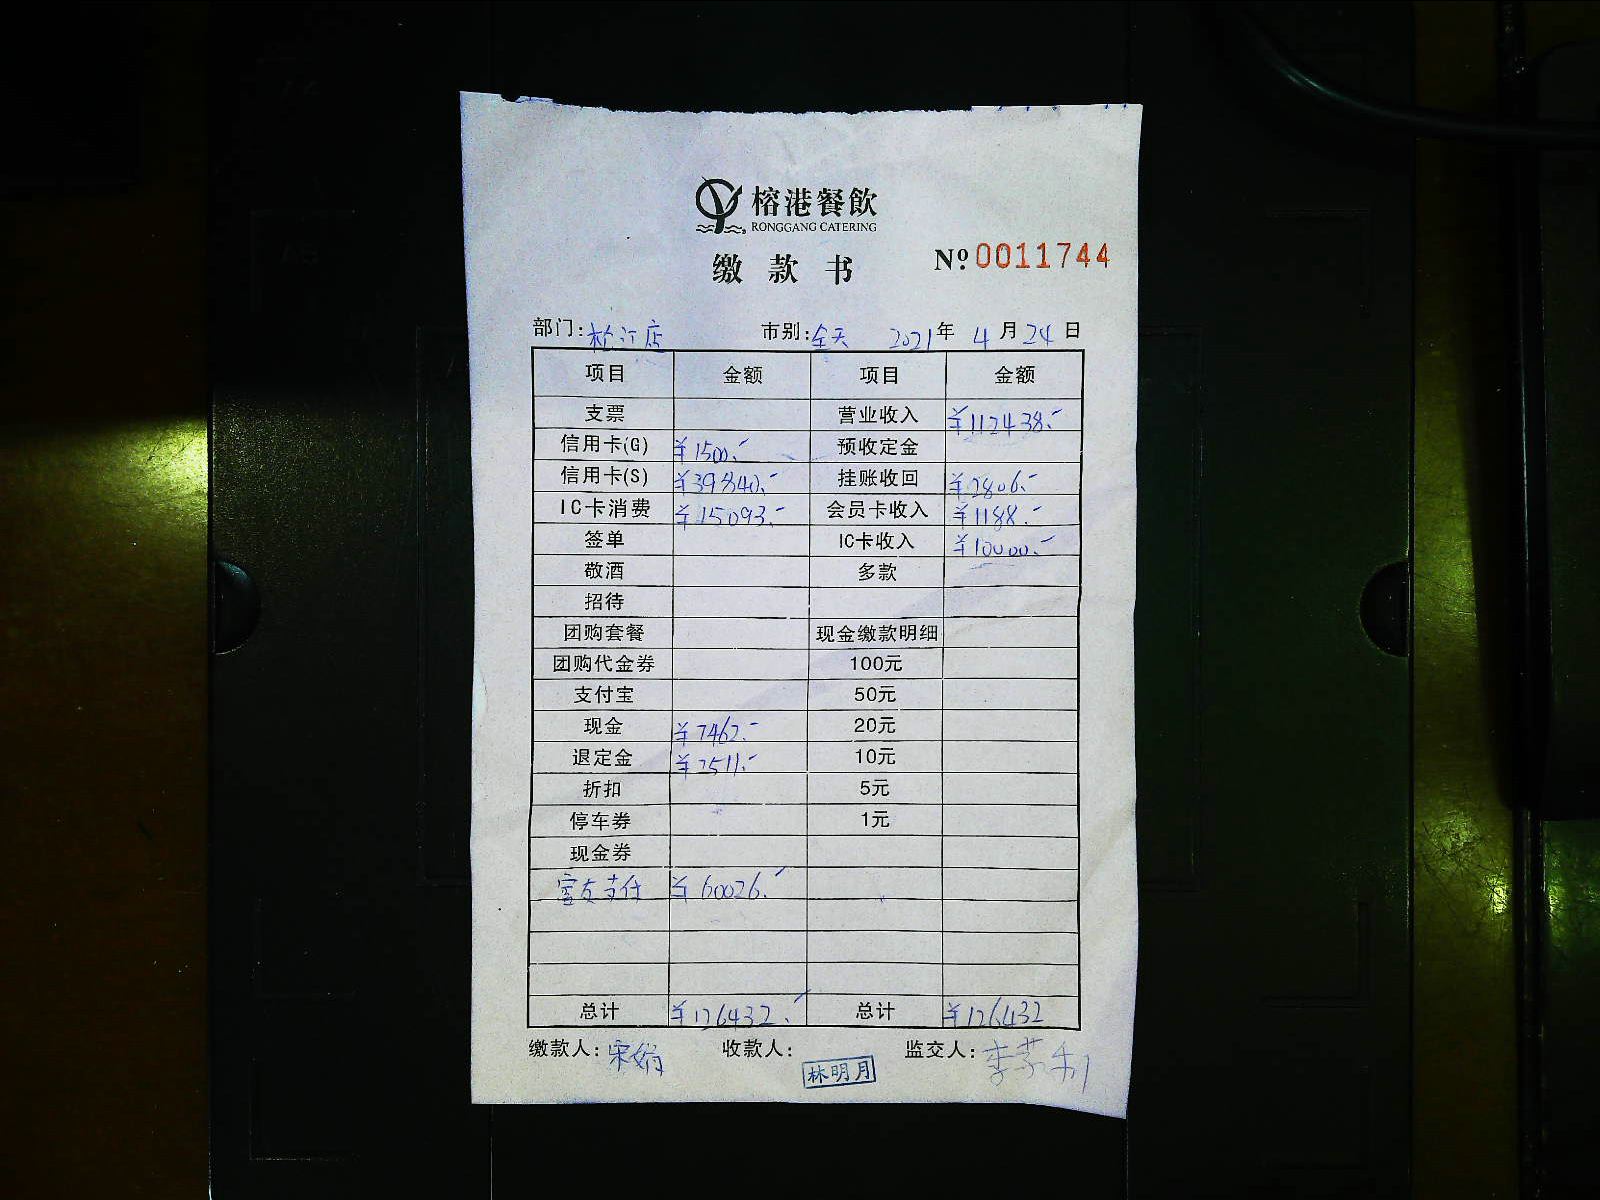 榕港餐飲
RONGGANG CATERING
缴款书 Nº 0011744
部门:松江店 市别:全天 2021年 4月24日
项目 金额 项目 金额
支票 营业收入 ¥112438.-
信用卡(G) ¥1500.- 预收定金
信用卡(S) ¥39840.- 挂账收回 ¥2806.-
IC卡消费 ¥15093.- 会员卡收入 ¥1188.-
签单 IC卡收入 ¥10000.-
敬酒 多款
招待
团购套餐 现金缴款明细
团购代金券 100元
支付宝 50元
现金 ¥7462.- 20元
退定金 ¥2511.- 10元
折扣 5元
停车券 1元
现金券
富友支付 ¥60026.-
总计 ¥126432.- 总计 ¥126432
缴款人:宋娟 收款人: 林明月 监交人:李